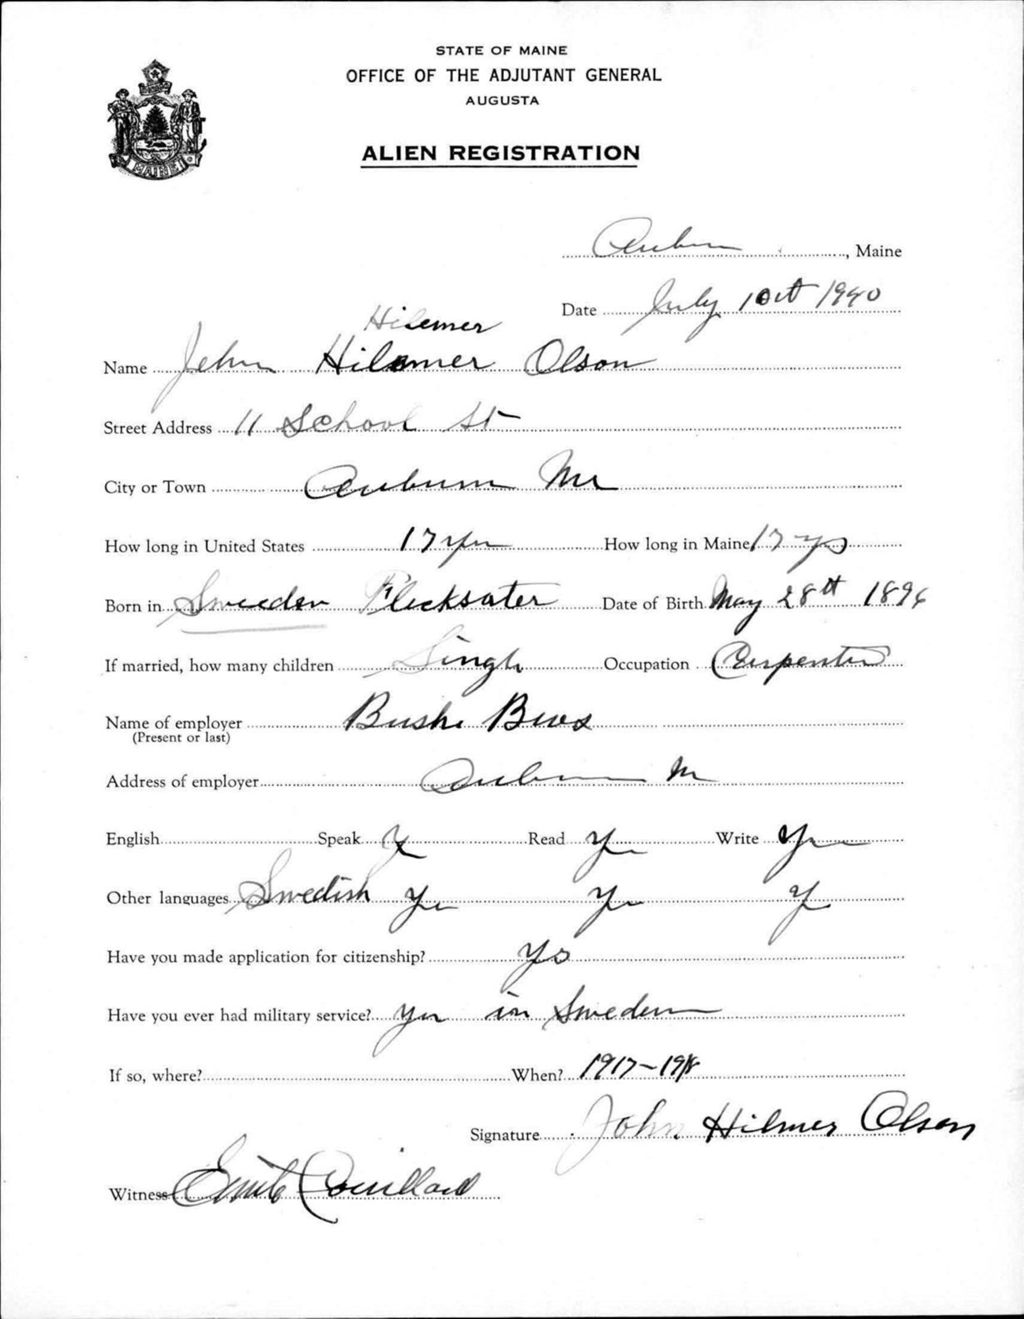 STATE OF MAINE
OFFICE OF THE ADJUTANT GENERAL
AUGUSTA
ALIEN REGISTRATION
Auburn, Maine
Date July 10th 1940
Hilmer
Name John Hilmer Olson
Street Address 11 School St
City or Town Auburn Me
How long in United States 17 yrs How long in Maine 17 ys
Born in Sweeden Date of Birth May 28th 1896
If married, how many children Single Occupation Carpenter
Name of employer
(Present or last)
Address of employer Auburn M
English Speak Y Read Yes Write Yes
Other languages Swedish Yes Yes Y
Have you made application for citizenship? Ys
Have you ever had military service? Yes in Sweden
If so, where? When? 1917-1918
Signature John Hilmer Olson
Witness